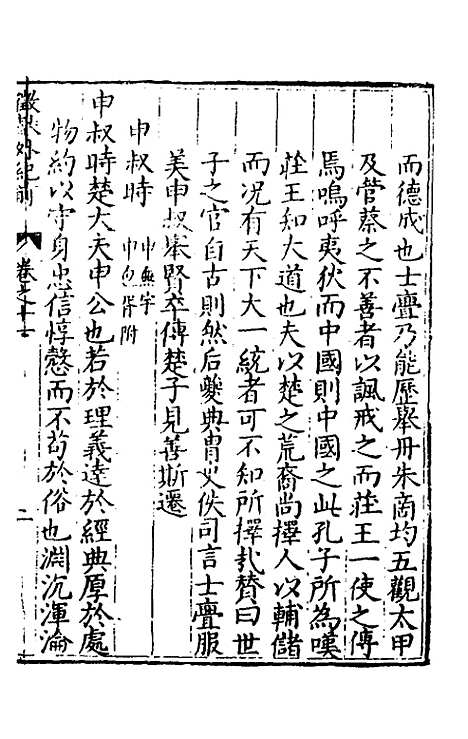 而德成也士亹乃能歷舉丹朱商均五觀太甲
及管蔡之不善者以諷戒之而莊王一使之傅
焉嗚呼夷狄而中國則中國之此孔子所為嘆
莊王知大道也夫以楚之荒裔尚擇人以輔儲
而况有天下大一統者可不知所擇哉贊曰世
子之官自古則然后夔典胄史佚司言士亹服
美申叔舉賢卒傅楚子見善斯遷
申叔時 申無宇 申包胥附
申叔時楚大夫申公也若於理義達於經典厚於處
物約以守身忠信惇愨而不苟於俗也淵沉渾淪
外紀前
卷之十一
二